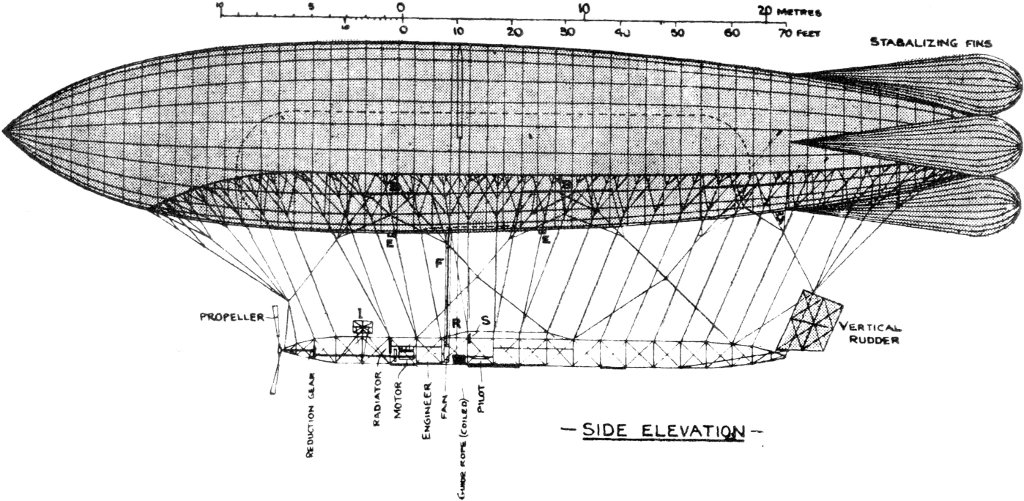 10 5 0 10 20 METRES
5 0 10 20 30 40 50 60 70 FEET
STABALIZING FINS
B B
E E
F
I
R S
PROPELLER
VERTICAL
RUDDER
REDUCTION GEAR
RADIATOR
MOTOR
ENGINEER
FAN
GUIDE ROPE (COILED)
PILOT
— SIDE ELEVATION —